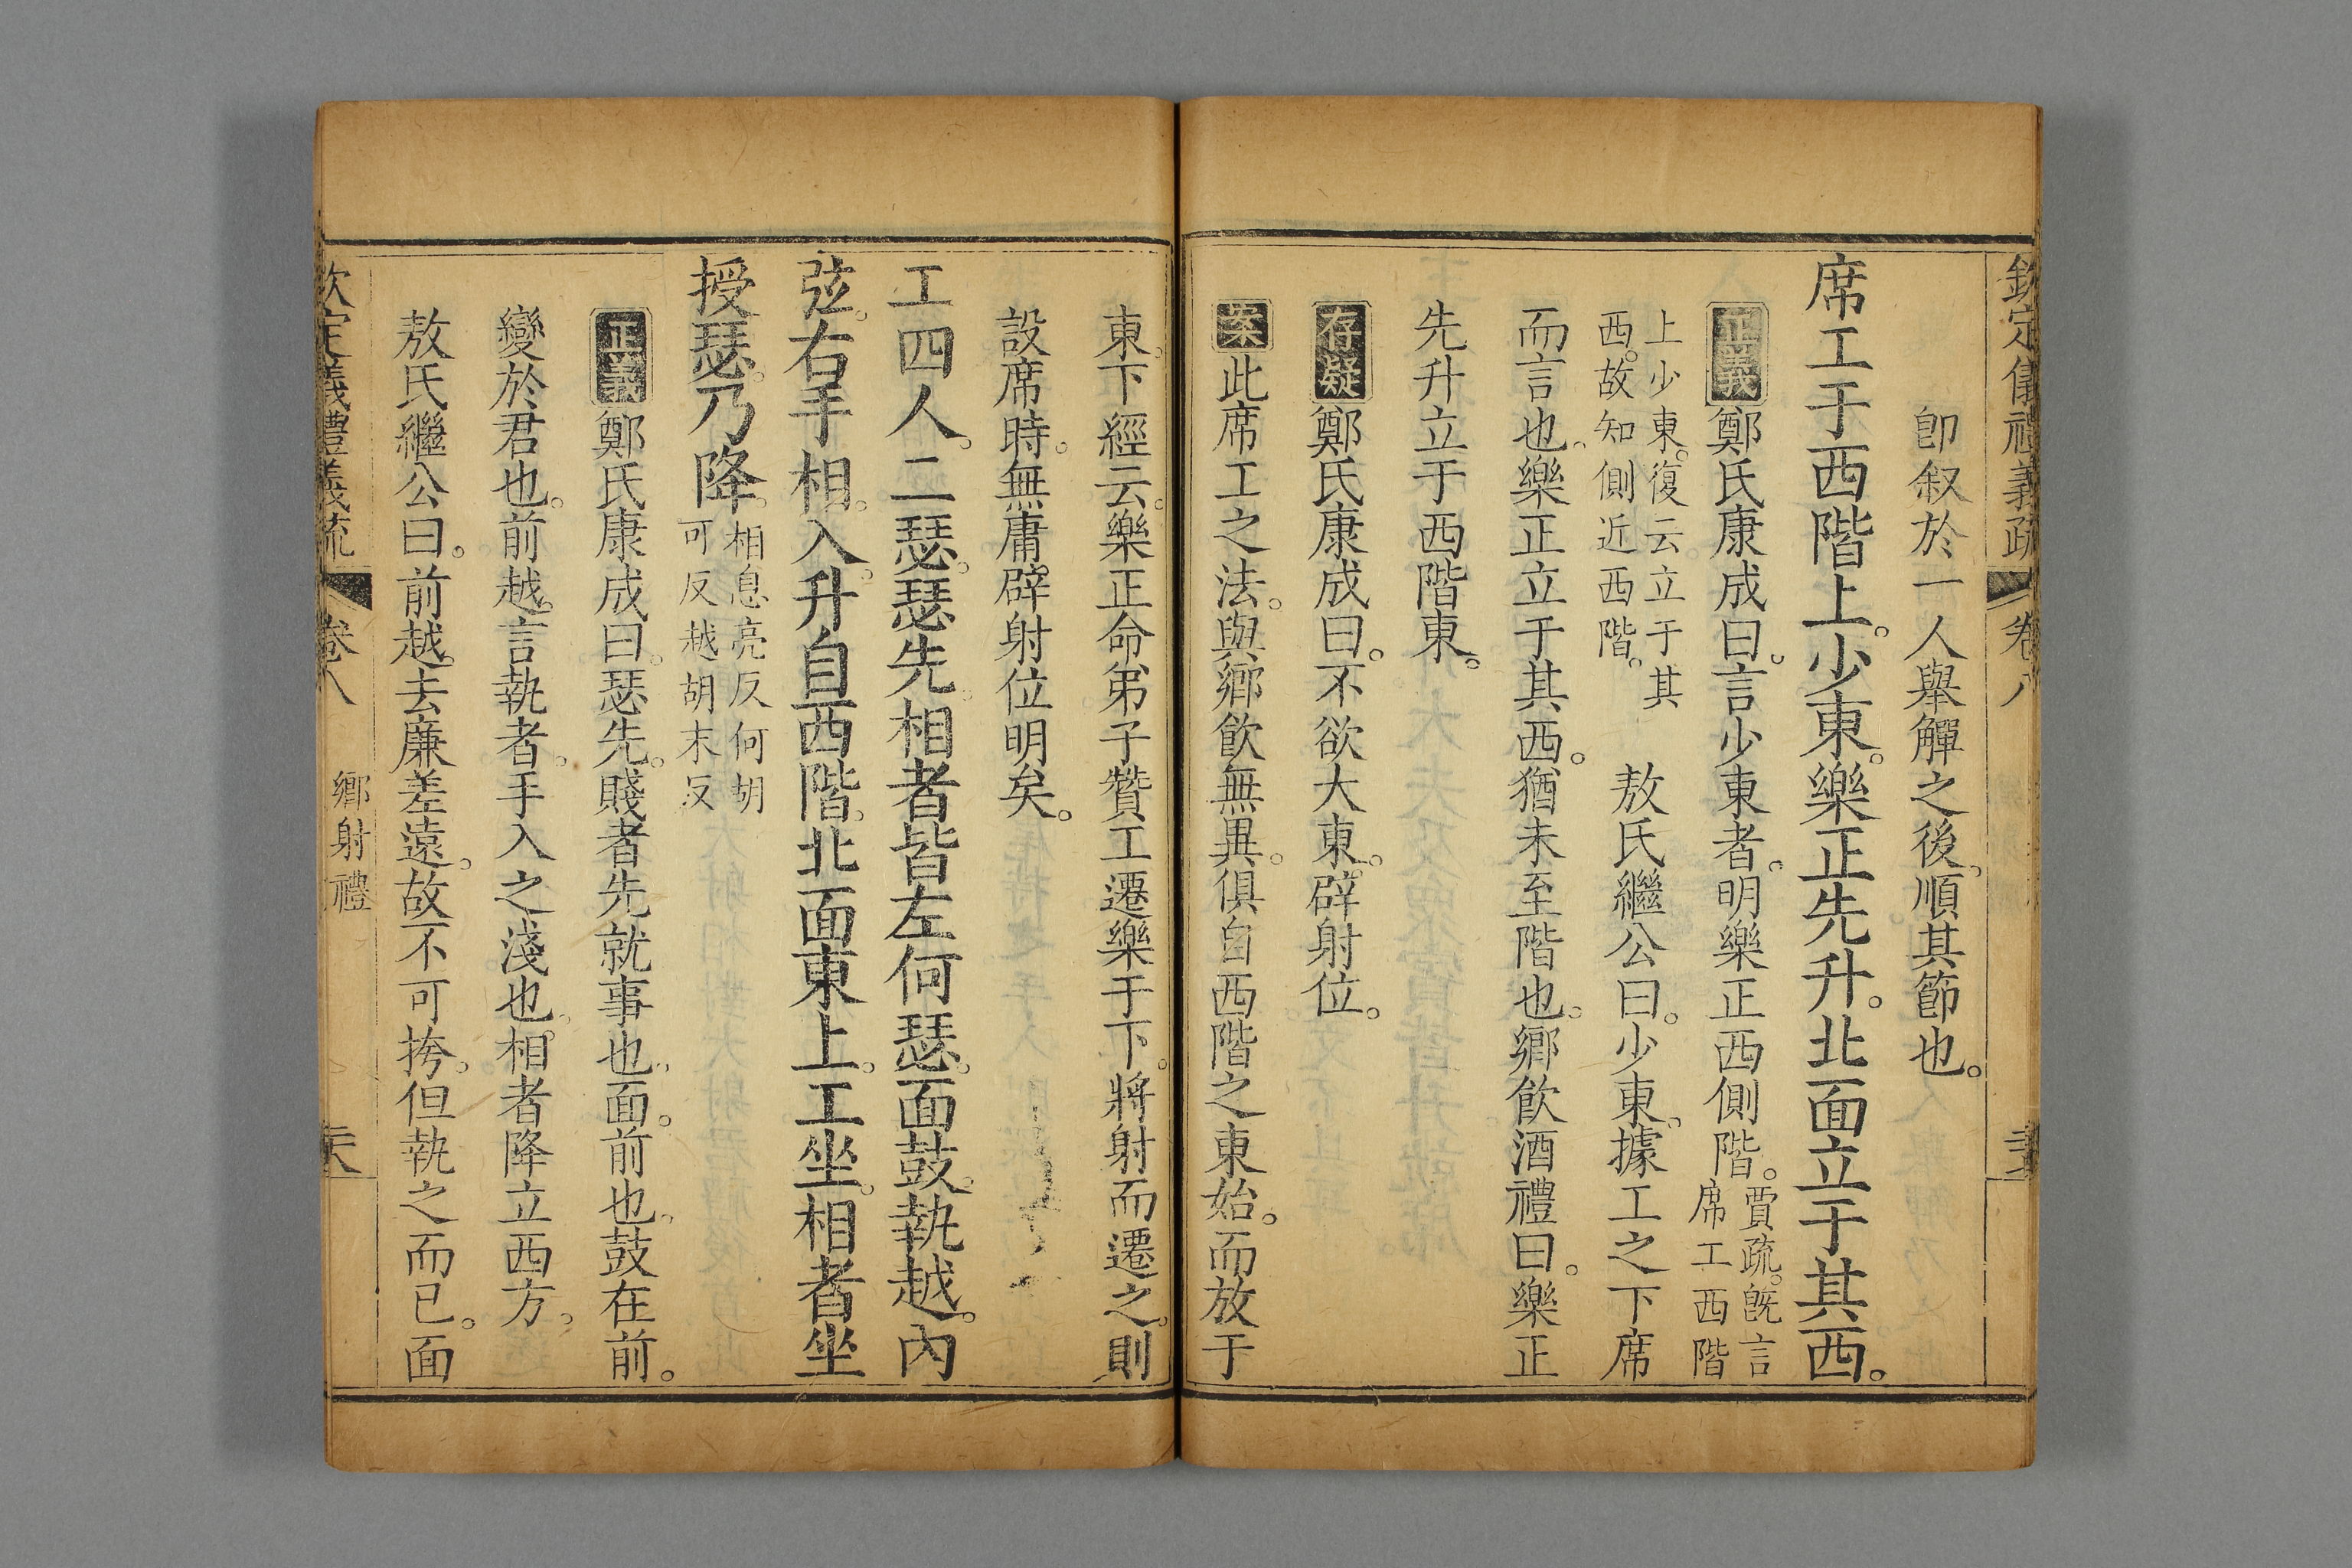 欽定儀禮義疏 卷八
卽叙於一人舉觶之後。順其節也。
席工于西階上。少東。樂正先升。北面立于其西。
正義 鄭氏康成曰。言少東者。明樂正西側階。賈疏。旣言席工西階
上少東。復云立于其西。故知側近西階。 敖氏繼公曰。少東。據工之下席
而言也。樂正立于其西。猶未至階也。鄉飮酒禮曰。樂正
先升立于西階東。
存疑 鄭氏康成曰。不欲大東。辟射位。
案 此席工之法。與鄉飮無異。俱自西階之東始。而放于
東。下經云。樂正命弟子贊工遷樂于下。將射而遷之。則
設席時。無庸辟射位明矣。
工四人。二瑟。瑟先。相者皆左何瑟。面鼓。執越。內
弦。右手相。入。升自西階。北面東上。工坐。相者坐
授瑟。乃降。相息亮反何胡可反越胡末反
正義 鄭氏康成曰。瑟先。賤者先就事也。面。前也。鼓在前。
變於君也。前越。言執者。手入之淺也。相者降立西方。
敖氏繼公曰。前越。去廉差遠。故不可挎。但執之而已。面
欽定儀禮義疏 卷八 鄉射禮